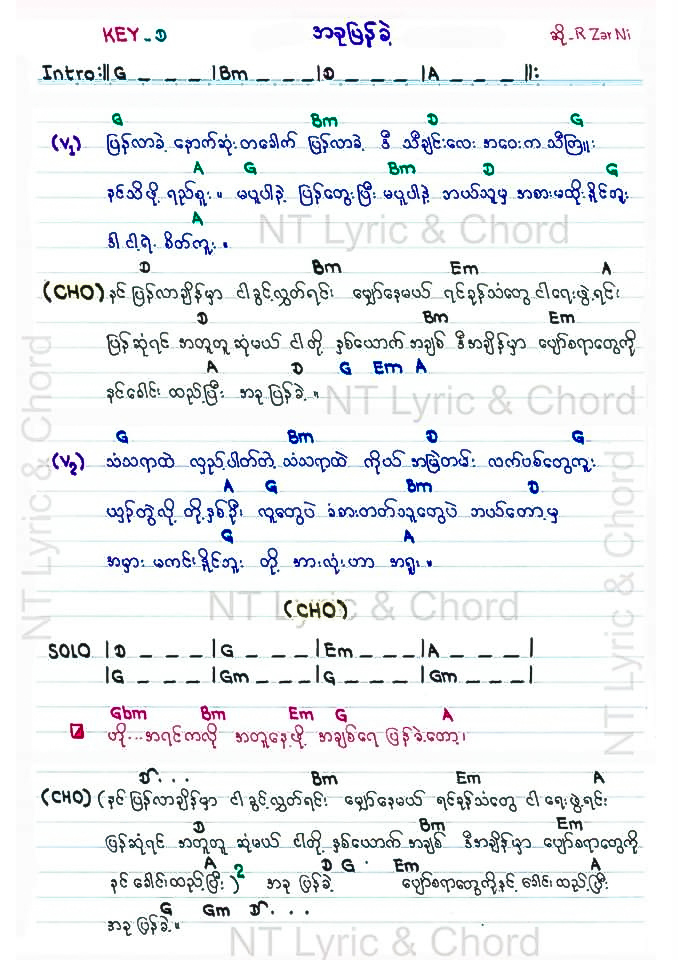 KEY - D
အခုပြန်ခဲ့
ဆို - R Zar Ni
Intro:||G _ _ _ |Bm _ _ _ |D _ _ _ |A _ _ _ ||:
G Bm D G
(V1) ပြန်လာခဲ့ နောက်ဆုံးတခေါက် ပြန်လာခဲ့ ဒီ သီချင်းလေး အဝေးက
A G Bm D G
နင်သိဖို့ ရည်စူး။ မယူပါနဲ့ ပြန်တွေးပြီး မယူပါနဲ့ ဘယ်သူမှ အစားမထိုးနိုင်ဘူး
A
ဒါ ငါ့ရဲ့ စိတ်ကူး။
NT Lyric & Chord
D Bm Em A
(CHO) နင် ပြန်လာချိန်မှာ ငါ ခွင့်လွှတ်ရင်း မျှော်နေမယ် ရင်ခုန်သံတွေ ငါရေးဖွဲ့ရင်း
D Bm Em
ပြန်ဆုံရင် အတူတူ ဆုံမယ် ငါတို့ နှစ်ယောက် အချစ် ဒီအချိန်မှာ ပျော်စရာတွေကို
A D G Em A
နင်ခေါင်းထည့်ပြီး အခု ပြန်ခဲ့။
NT Lyric & Chord
NT Lyric & Chord
G Bm D G
(V2) သံသရာထဲ လှည့်ပါတ်တဲ့ သံသရာထဲ ကိုယ် အမြဲတမ်း လက်ပစ်တွေကူး
A G Bm D
ယှဉ်တွဲလို့ တို့နှစ်ဦး၊ လူတွေပဲ ခံစားတတ်သူတွေပဲ ဘယ်တော့မှ
G A
အမှား မကင်းနိုင်ဘူး တို့ အားလုံးဟာ အရူး။
NT Lyric & Chord
(CHO)
NT Lyric & Chord
SOLO |D _ _ _ |G _ _ _ |Em _ _ _ |A _ _ _ |
|G _ _ _ |Gm _ _ _ |G _ _ _ |Gm _ _ _ |
Gbm Bm Em G A
ဟို...အရင်ကလို အတူနေ့ဖို့ အချစ်ရေ ပြန်ခဲ့တော့၊
D... Bm Em A
(CHO) (နင် ပြန်လာချိန်မှာ ငါ ခွင့်လွှတ်ရင်း မျှော်နေမယ် ရင်ခုန်သံတွေ ငါ ရေးဖွဲ့ရင်း
D Bm Em
ပြန်ဆုံရင် အတူတူ ဆုံမယ် ငါတို့ နှစ်ယောက် အချစ် ဒီအချိန်မှာ ပျော်စရာတွေကို
A D G Em A
နင် ခေါင်းထည့်ပြီး )2 အခု ပြန်ခဲ့ ပျော်စရာတွေကိုနင့် ခေါင်းထည့်ပြီး
G Gm D...
အခု ပြန်ခဲ့။
NT Lyric & Chord